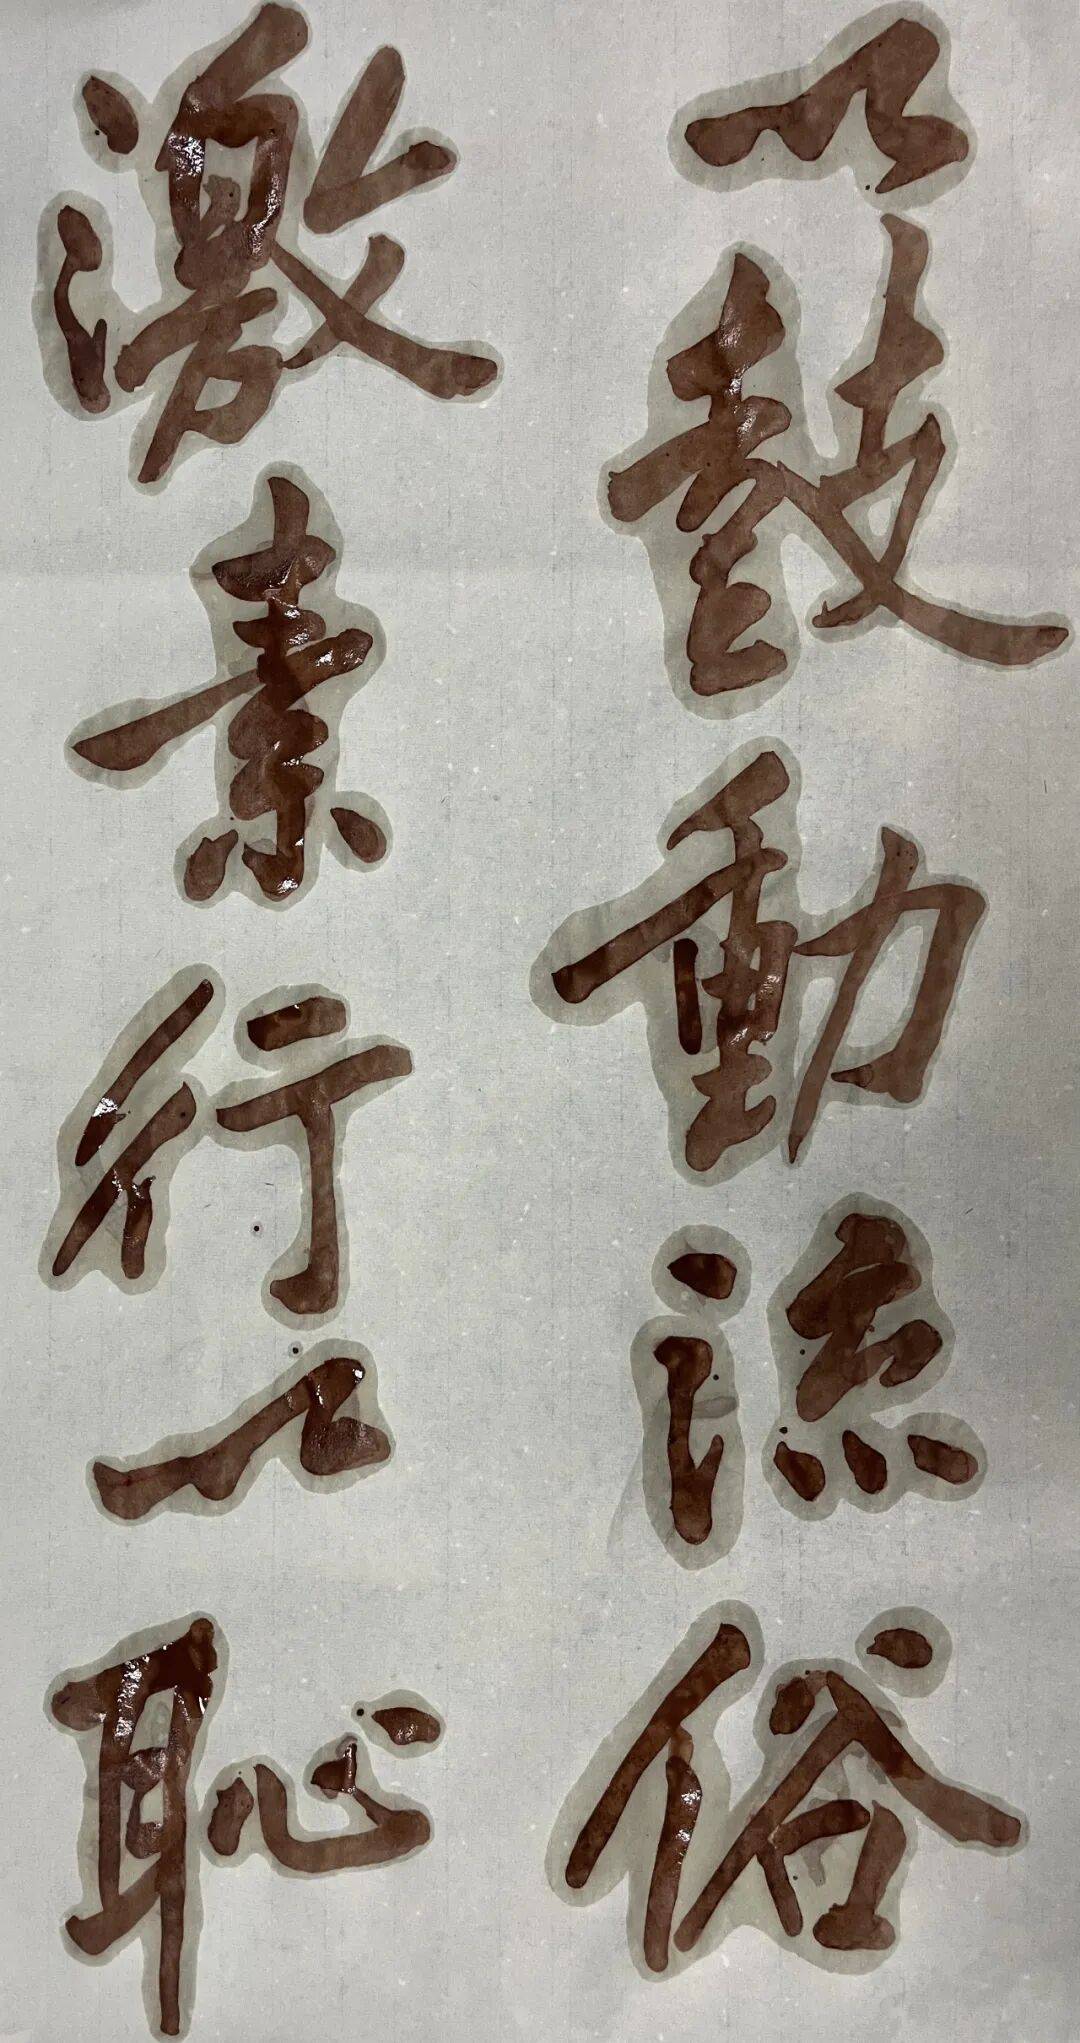 以鼓動流俗
激素行以恥